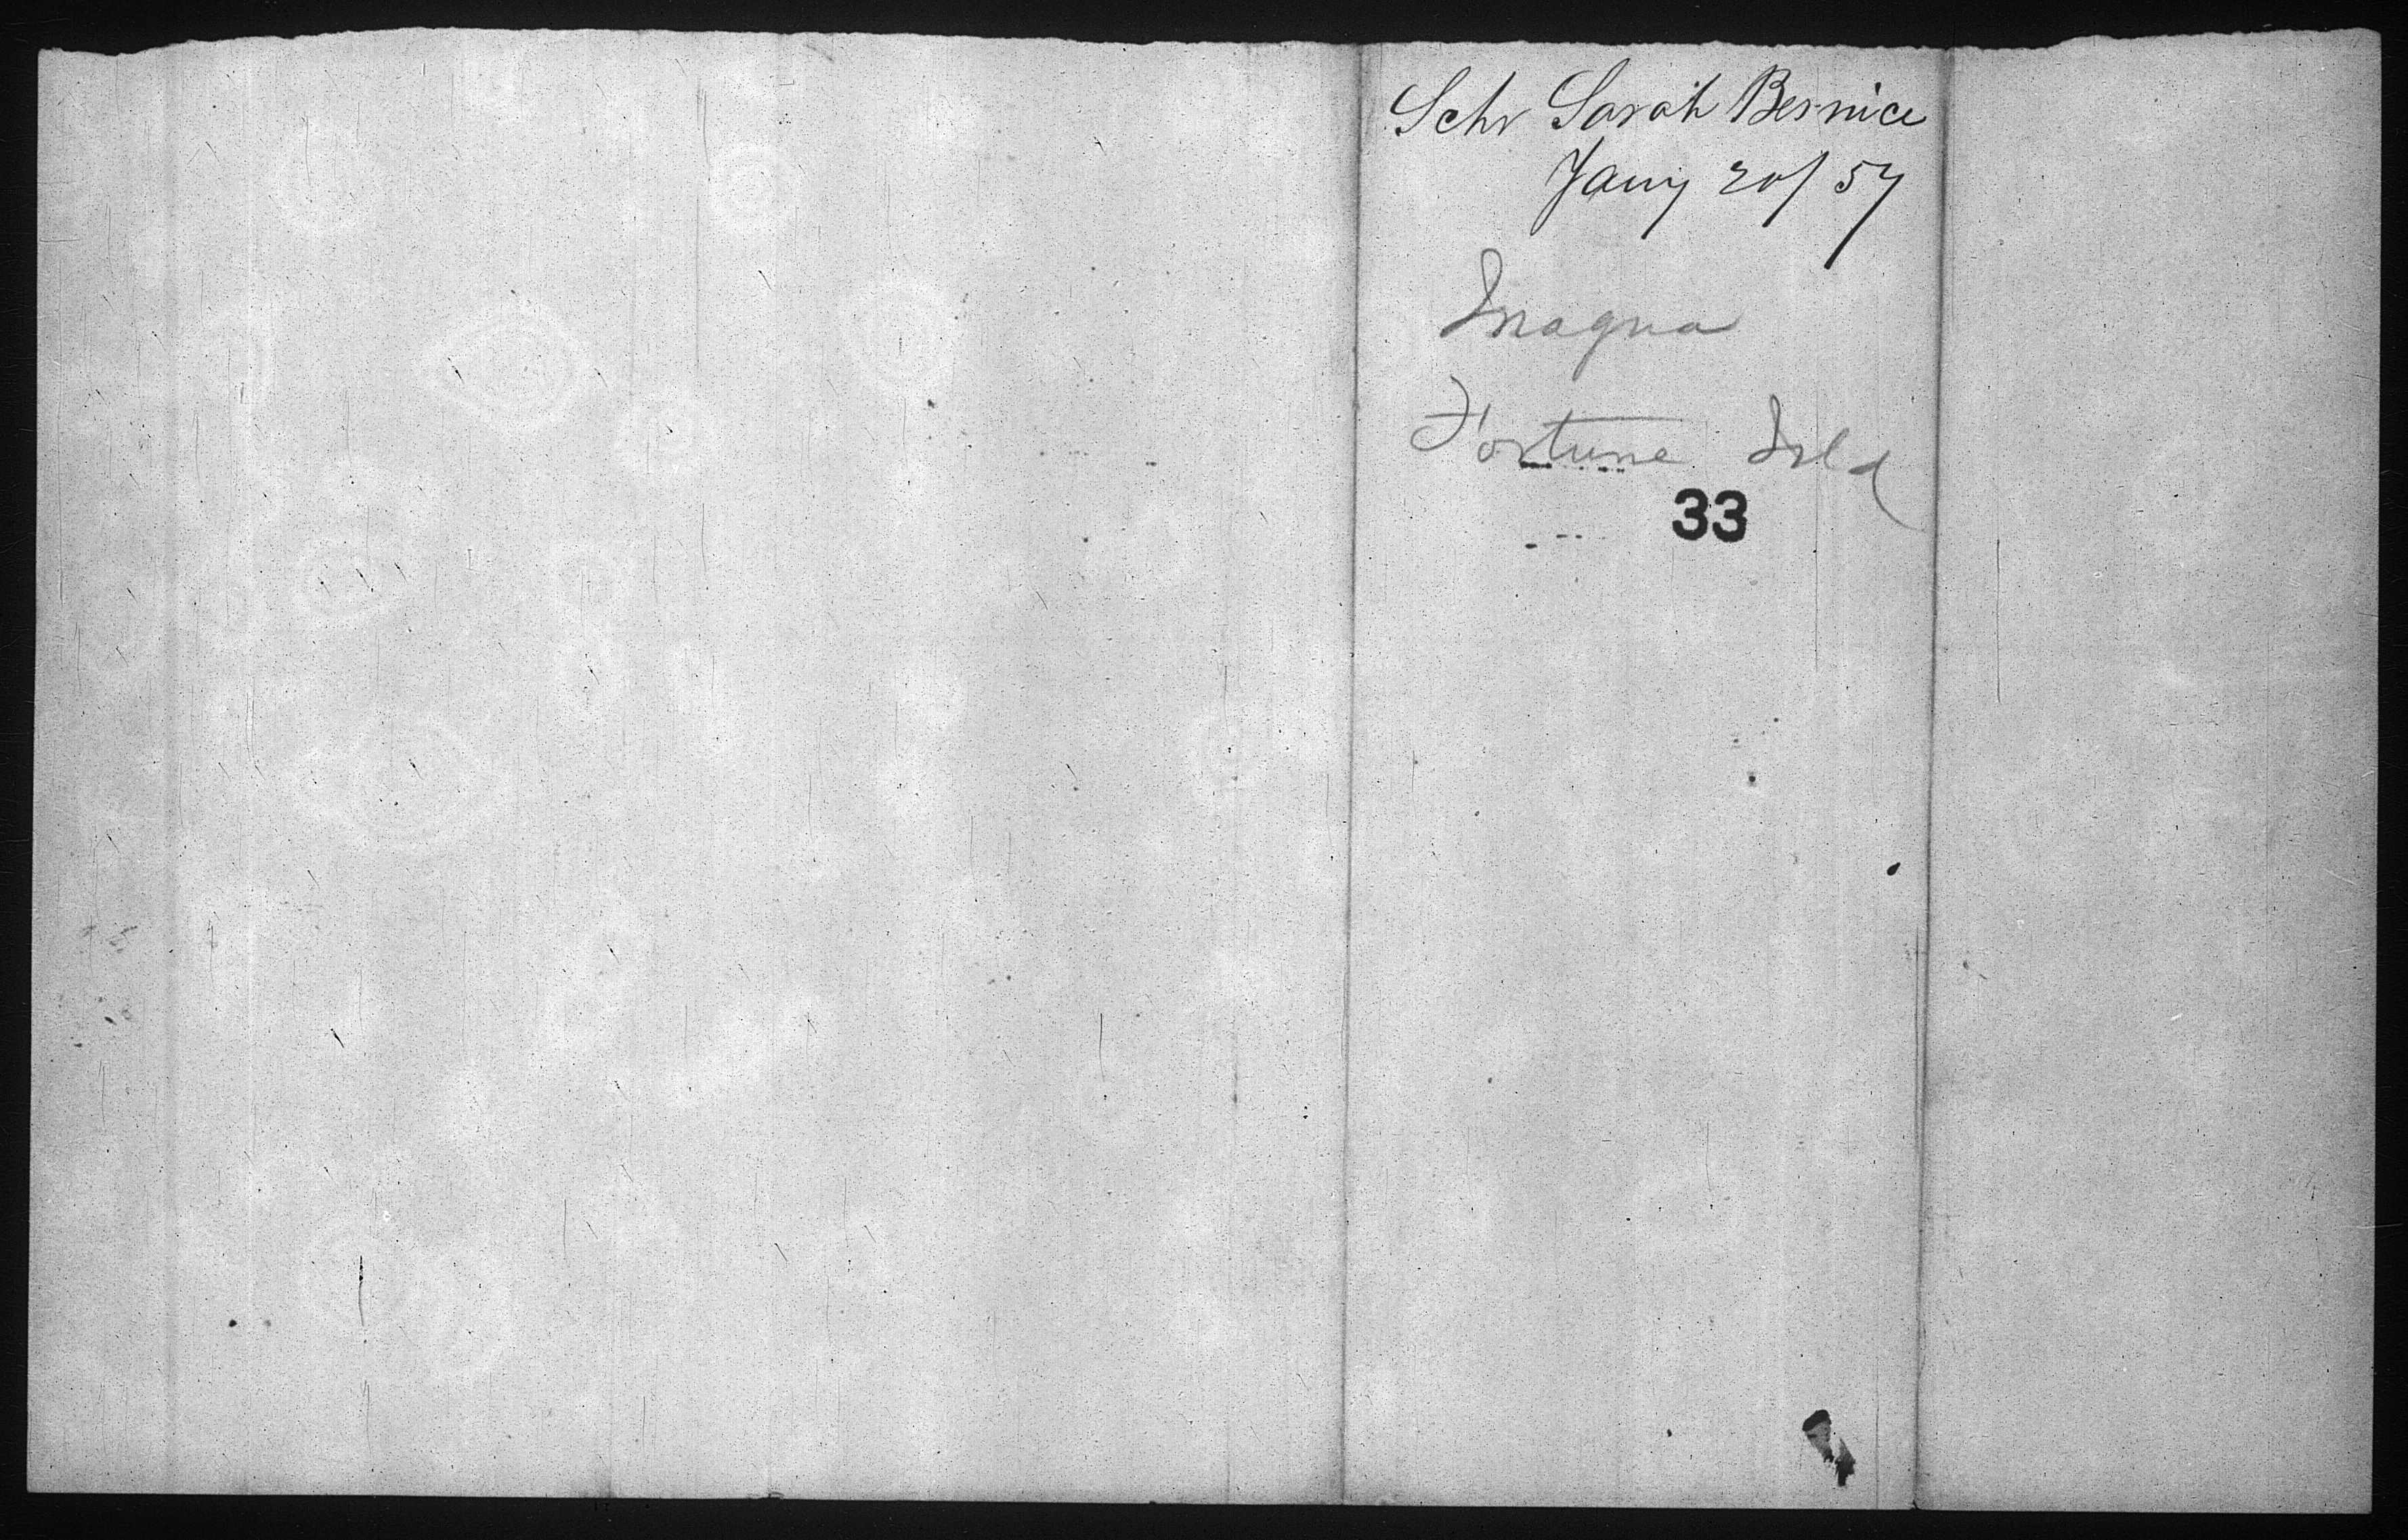 Schr Sarah Bernice
Jany 20/57
Inagua
Fortune Isld
33